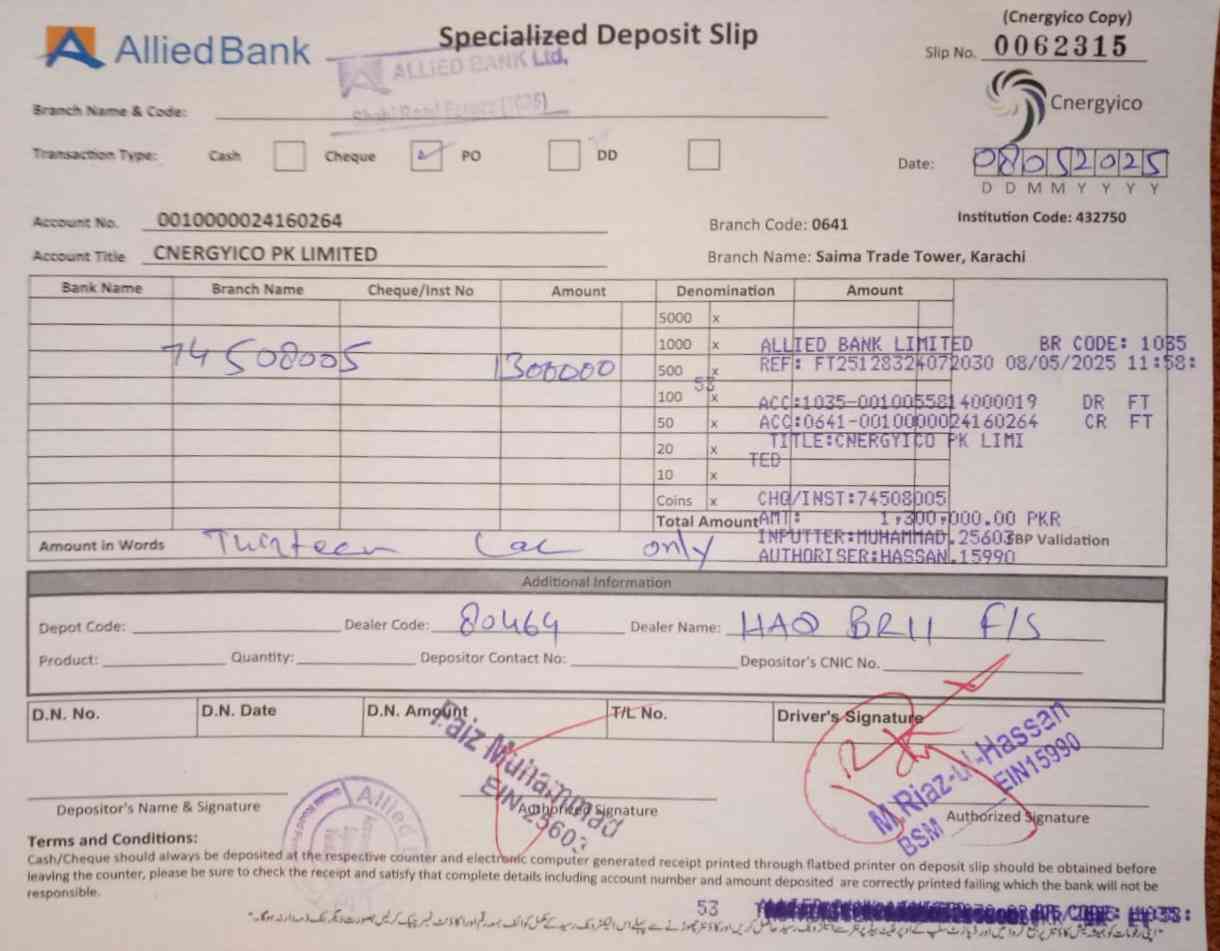 (Cnergyico Copy)
Allied Bank
Specialized Deposit Slip
Slip No. 0062315
ALLIED BANK Ltd.
Cnergyico
Branch Name & Code:
Transaction Type: Cash Cheque PO DD
Date: 08052025
D D M M Y Y Y Y
Account No. 0010000024160264
Branch Code: 0641
Institution Code: 432750
Account Title CNERGYICO PK LIMITED
Branch Name: Saima Trade Tower, Karachi
Bank Name Branch Name Cheque/Inst No Amount Denomination Amount
5000 x
1000 x
ALLIED BANK LIMITED BR CODE: 1035
74508005 1300000
500 x
REF: FT25128324072030 08/05/2025 11:58:
53
100 x
ACC:1035-0010055814000019 DR FT
50 x
ACC:0641-0010000024160264 CR FT
20 x
TITLE:CNERGYICO PK LIMI
TED
10 x
Coins x
CHQ/INST:74508005
Total Amount
AMT: 1,300,000.00 PKR
Amount in Words Thirteen Lac only
INPUTTER:MUHAMMAD.25603
SBP Validation
AUTHORISER:HASSAN.15990
Additional Information
Depot Code: Dealer Code: 80464 Dealer Name: HAQ BRII F/S
Product: Quantity: Depositor Contact No: Depositor's CNIC No.
D.N. No. D.N. Date D.N. Amount T/L No. Driver's Signature
Faiz Muhammad
EIN-25603
M.Riaz-ul-Hassan
EIN15990
BSM
Depositor's Name & Signature Authorized Signature Authorized Signature
Allied
Terms and Conditions:
Cash/Cheque should always be deposited at the respective counter and electronic computer generated receipt printed through flatbed printer on deposit slip should be obtained before
leaving the counter, please be sure to check the receipt and satisfy that complete details including account number and amount deposited are correctly printed failing which the bank will not be
responsible.
53